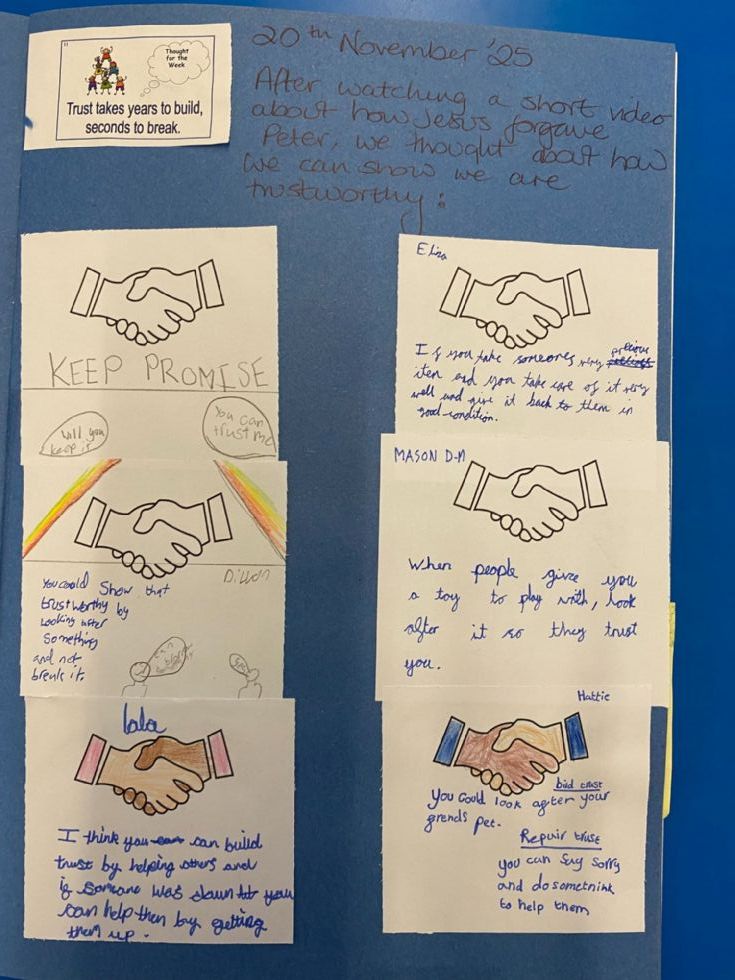 Thought
for the
Week
Trust takes years to build,
seconds to break.
20th November '25
After watching a short video
about how Jesus forgave
Peter, we thought about how
we can show we are
trustworthy:
KEEP PROMISE
Will you
keep it
You can
trust me
Elina
If you take someones very precious
item and you take care of it very
well and give it back to them in
good condition.
Dillon
You could show that
trustworthy by
looking after
something
and not
break it.
MASON D-M
When people give you
a toy to play with, look
after it so they trust
you.
lala
I think you can build
trust by helping others and
if someone was down you
can help them by getting
them up.
Hattie
bild trust
You could look agter your
grends pet.
Repair trust
you can say sorry
and do sometnink
to help them